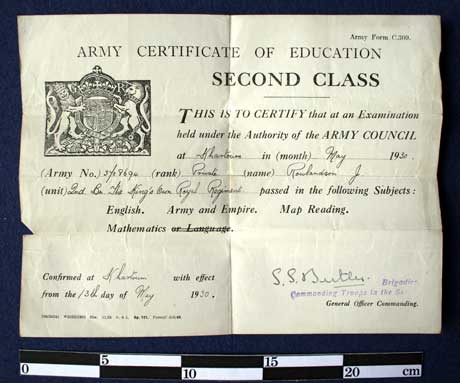 Army Form C.309.
ARMY CERTIFICATE OF EDUCATION
SECOND CLASS
THIS IS TO CERTIFY that at an Examination
held under the Authority of the ARMY COUNCIL
at Khartoum in (month) May 1930.
(Army No.) (rank) Private (name) Rowlandson J.
(unit) 2nd Bn The King's Own Royal Regiment passed in the following Subjects:
English. Army and Empire. Map Reading.
Mathematics or Language.
Confirmed at Khartoum with effect
from the 13th day of May 1930.
S.S. Butler.
Brigadier
Commanding Troops in the
General Officer Commanding.
0 5 10 15 20 cm